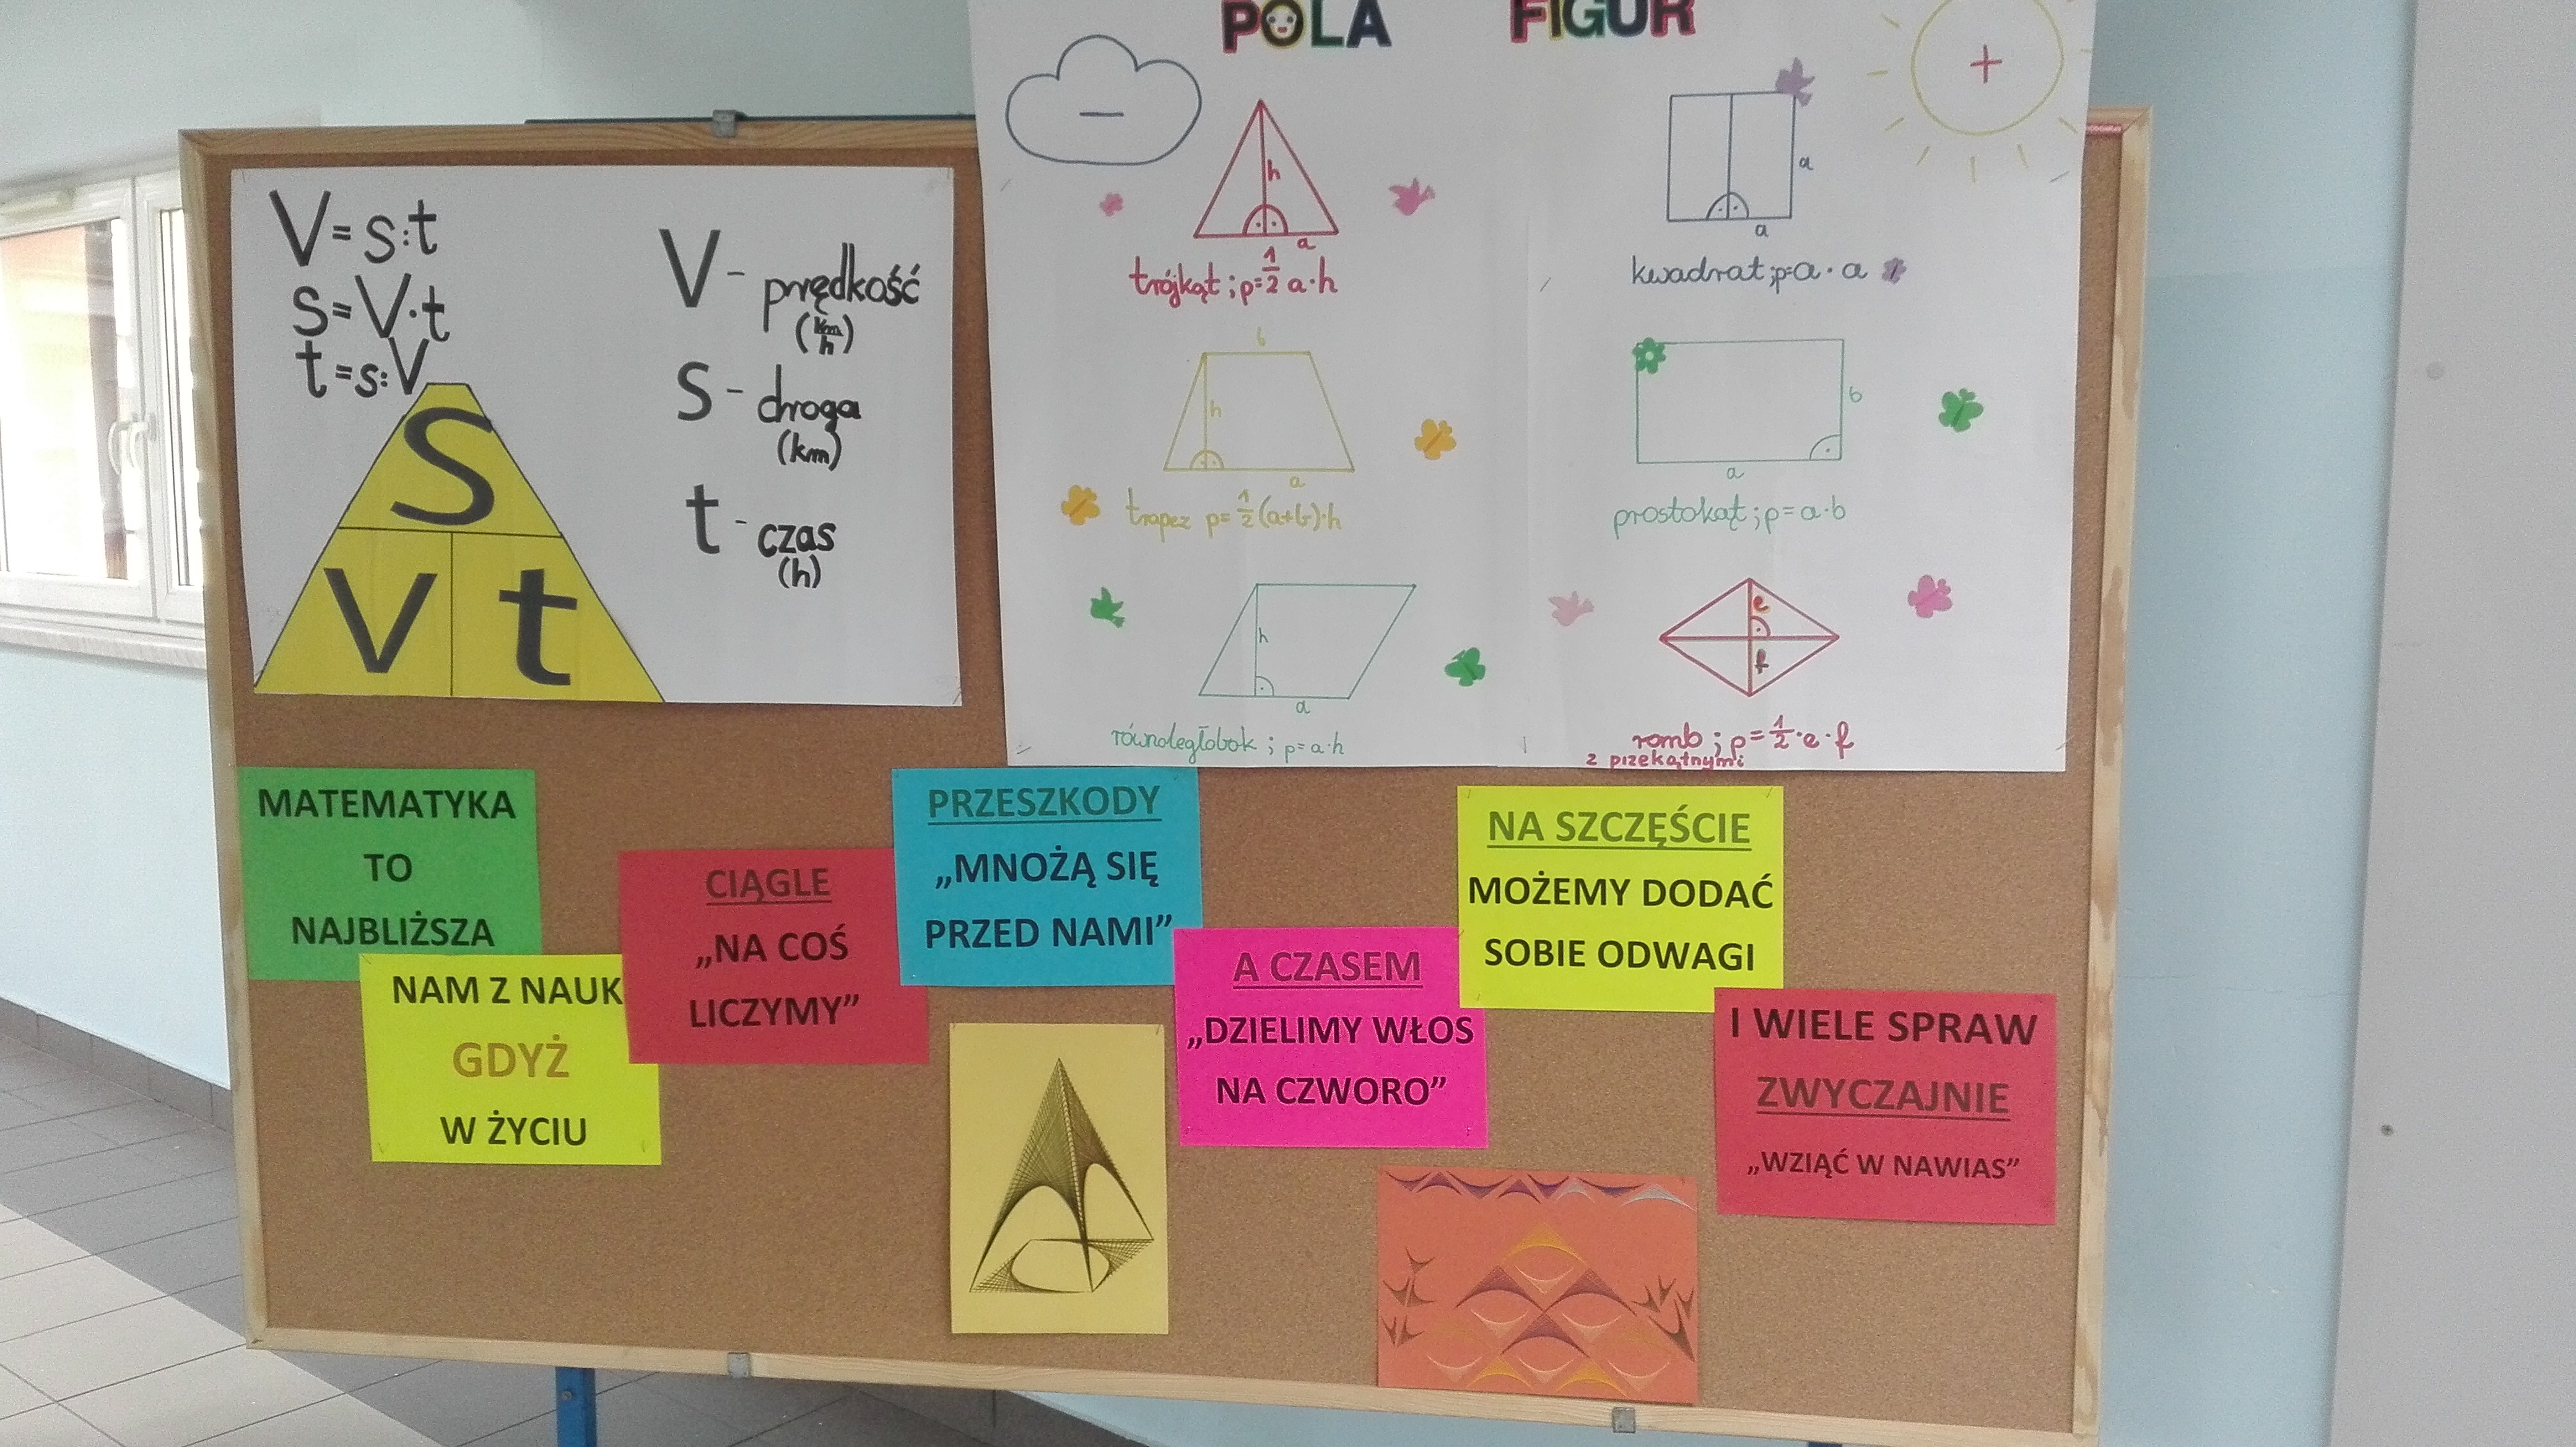 V = s:t
S = V·t
t = s:V
S
V t
V - prędkość
(km/h)
S - droga
(km)
t - czas
(h)
POLA FIGUR
-
+
h
a
trójkąt ; p= 1/2 a·h
a
a
kwadrat ; p=a·a
b
h
a
trapez p= 1/2 (a+b)·h
b
a
prostokąt ; p=a·b
h
a
równoległobok ; p=a·h
e
f
romb ; p= 1/2·e·f
z przekątnymi
MATEMATYKA
TO
NAJBLIŻSZA
NAM Z NAUK
GDYŻ
W ŻYCIU
CIĄGLE
„NA COŚ
LICZYMY”
PRZESZKODY
„MNOŻĄ SIĘ
PRZED NAMI”
A CZASEM
„DZIELIMY WŁOS
NA CZWORO”
NA SZCZĘŚCIE
MOŻEMY DODAĆ
SOBIE ODWAGI
I WIELE SPRAW
ZWYCZAJNIE
„WZIĄĆ W NAWIAS”